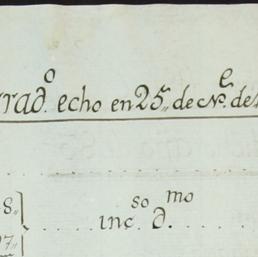 rad.º echo en 25,, de N.e de
8,,
inc.so d.mo
7,,